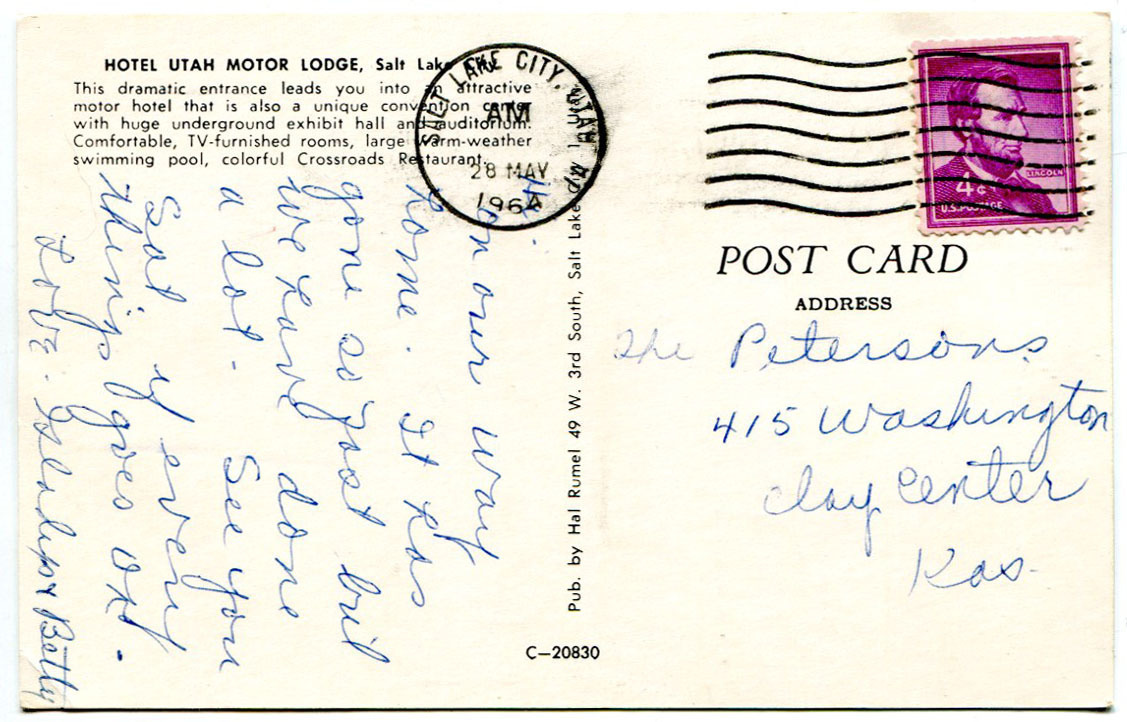 HOTEL UTAH MOTOR LODGE, Salt Lake City
This dramatic entrance leads you into an attractive
motor hotel that is also a unique convention center
with huge underground exhibit hall and auditorium.
Comfortable, TV-furnished rooms, large warm-weather
swimming pool, colorful Crossroads Restaurant.
SALT LAKE CITY, UTAH
AM
28 MAY
1964
4¢
LINCOLN
U.S. POSTAGE
Hi.
on our way
home. It has
gone so fast but
we have done
a lot. See you
Sat if every
things goes ok.
Love.
Betty
Pub. by Hal Rumel 49 W. 3rd South, Salt Lake City 1, Utah
C-20830
POST CARD
ADDRESS
The Petersons
415 Washington
Clay Center
Kas.